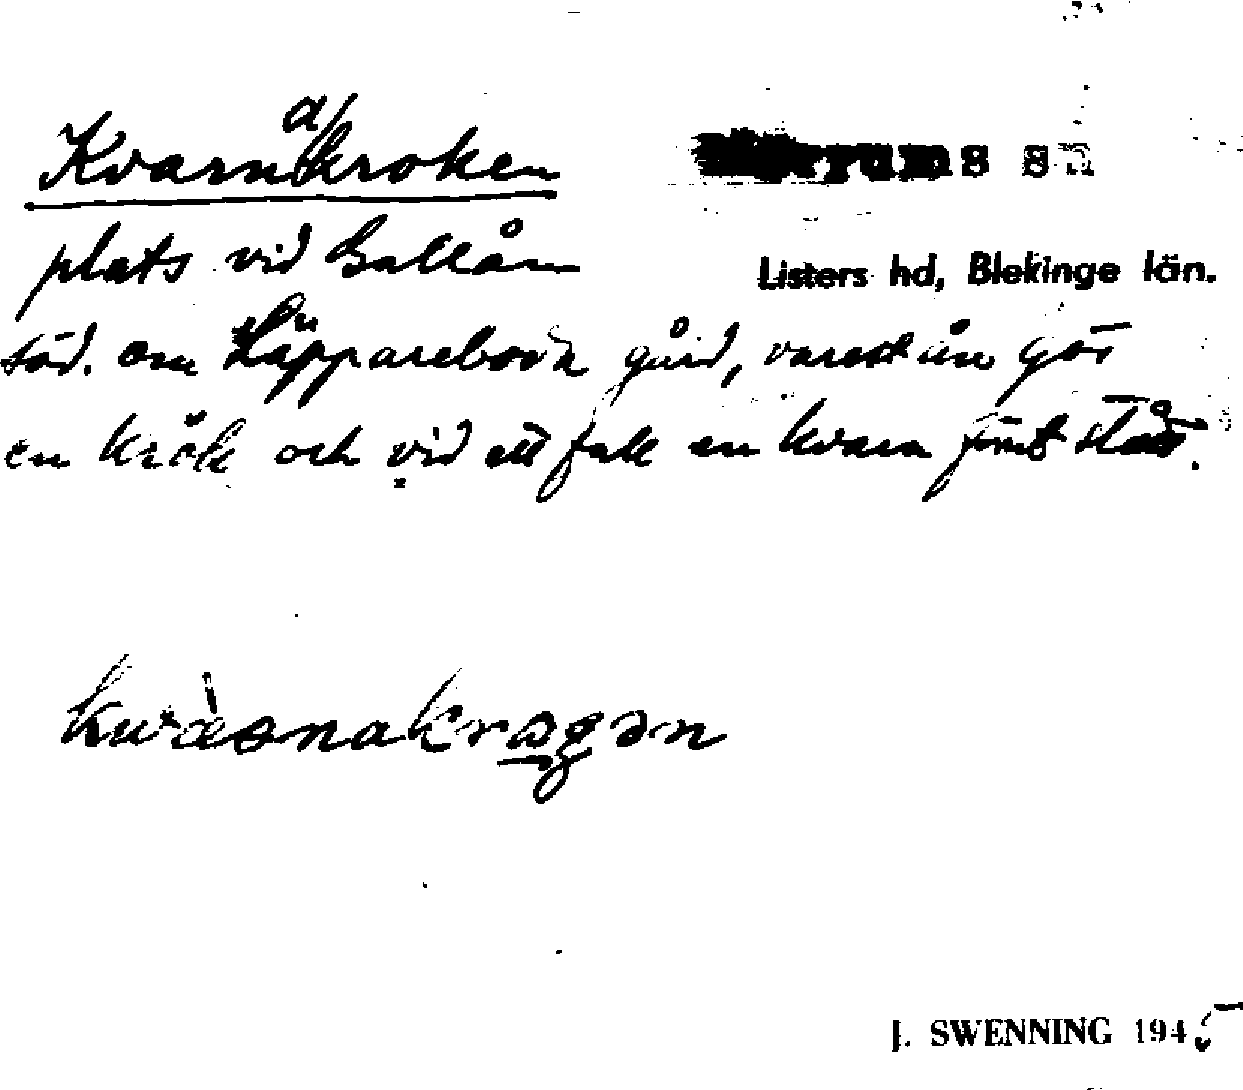 Kvarnakroken
Mörrums sn
plats vid Gallån
Listers hd, Blekinge län.
söd. om Läppareboda gård, varest ån gör
en krök och vid ett fall en kvarn förut stått.
kwàənakrogən
J. SWENNING 1945